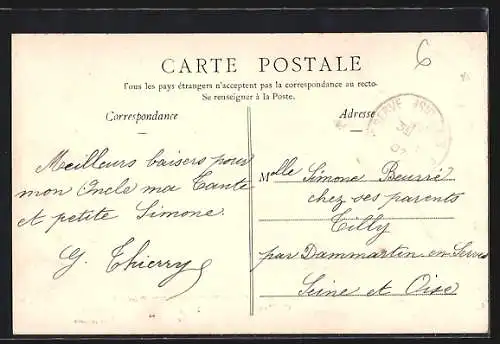 6
CARTE POSTALE
Tous les pays étrangers n'acceptent pas la correspondance au recto.
Se renseigner à la Poste.
Correspondance
Adresse
Meilleurs baisers pour
mon Oncle ma Tante
et petite Simone.
G. Thierry
Melle Simone Beurré
chez ses parents
Tilly
par Dammartin en Serves
Seine et Oise